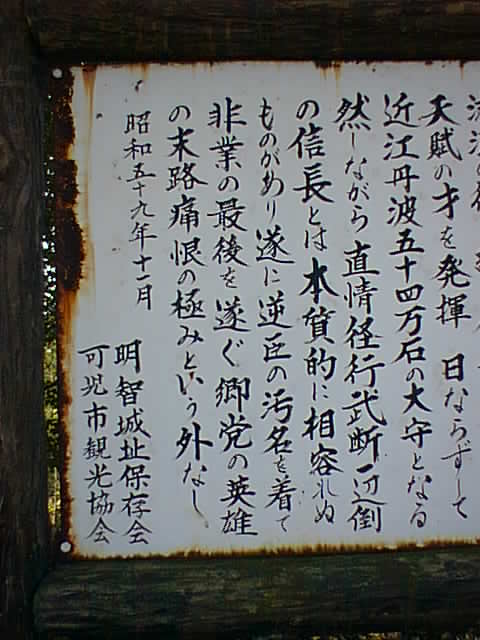 天賦の才を発揮 日ならずして
近江丹波五十四万石の大守となる
然しながら直情径行武断一辺倒
の信長とは本質的に相容れぬ
ものがあり遂に逆臣の汚名を着て
非業の最後を遂ぐ郷党の英雄
の末路痛恨の極みという外なし
昭和五十九年十一月
明智城址保存会
可児市観光協会